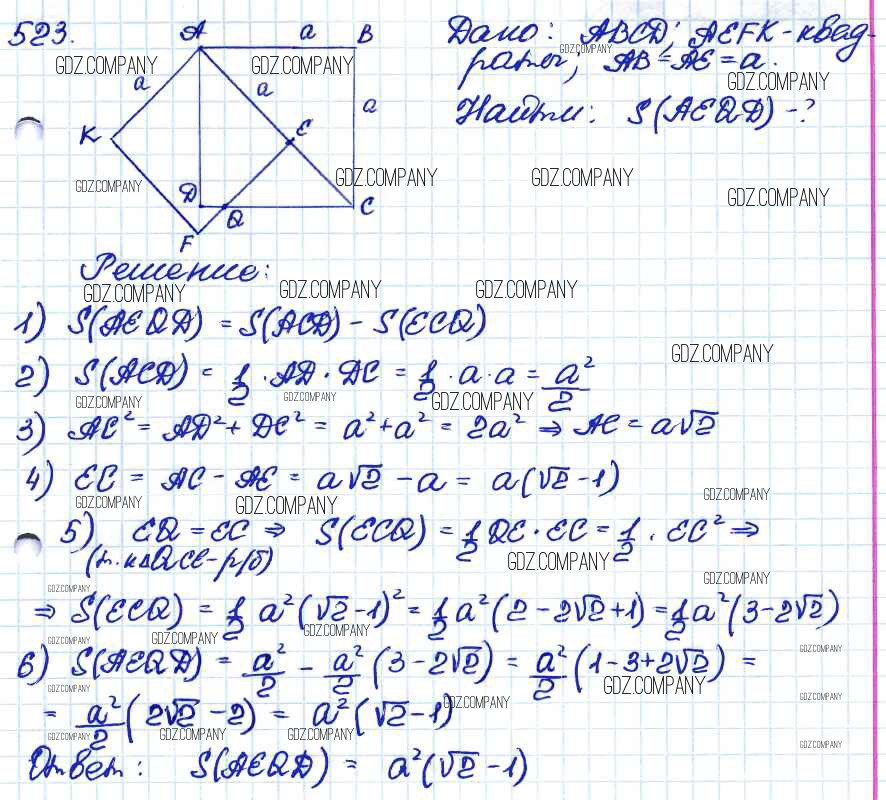 523.
A a B
a a a
K E
D Q C
F
Дано: ABCD; AEFK - квад-
раты; AB = AE = a.
Найти: S(AEQD) - ?
Решение:
1) S(AEQD) = S(ACD) - S(ECQ)
2) S(ACD) = 1/2 · AD · DC = 1/2 · a · a = a²/2
3) AC² = AD² + DC² = a² + a² = 2a² ⇒ AC = a√2
4) EC = AC - AE = a√2 - a = a(√2 - 1)
5) EQ = EC ⇒ S(ECQ) = 1/2 QE · EC = 1/2 · EC² ⇒
(т.к ΔQCE - р/б)
⇒ S(ECQ) = 1/2 a²(√2 - 1)² = 1/2 a²(2 - 2√2 + 1) = 1/2 a²(3 - 2√2)
6) S(AEQD) = a²/2 - a²/2 (3 - 2√2) = a²/2 (1 - 3 + 2√2) =
= a²/2 (2√2 - 2) = a²(√2 - 1)
Ответ: S(AEQD) = a²(√2 - 1)
GDZ.COMPANY